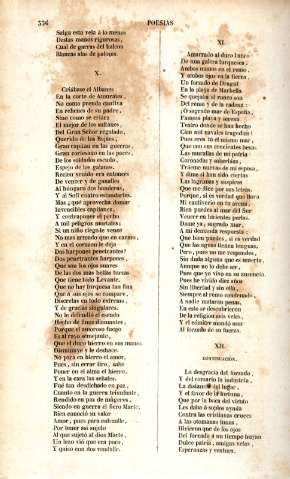 556 POESIAS
Salga esta vela á lo menos
Destas manos rigurosas,
Cual de garras del halcon
Blancas alas de paloma.
X.
Criábase el Albanes
En la corte de Amurates,
No como prenda cautiva
En rehenes de su padre,
Sino como se criára
El mejor de los sultanes,
Del Gran Señor regalado,
Querido de los Bajaes,
Gran capitan en las guerras,
Gran cortesano en las paces,
De los soldados escudo,
Espejo de los galanes.
Recien venido era entonces
De vencer y de ganalles
Al húngaro dos banderas,
Y al Sofí cuatro estandartes.
Mas ¿qué aprovecha domar
Invencibles capitanes,
Y contraponer el pecho
A mil peligros mortales,
Si un niño ciego le vence
No mas armado que en carnes,
Y en el corazon le deja
Dos harpones penetrantes?
Dos penetrantes harpones,
Que son los ojos suaves
De las dos mas bellas turcas
Que tiene todo Levante.
Que no hay turquesa tan fina
Que á sus ojos se compare,
Discretas en todo extremo,
Y de gracias singulares.
No le defendió el escudo
Hecho de finos diamantes,
Porque el amoroso fuego
Es al rayo semejante,
Que el duro hierro en sus manos
Disminuye y le deshace.
No para en hierro el amor,
Pues, sin errar tiro, sabe
Poner en el alma el hierro,
Y en la cara las señales.
Fué tan desdichado en paz,
Cuanto en la guerra triunfante,
Rendido en paz de mugeres,
Siendo en guerra el fiero Marte.
Bien conoció su valor
Amor, pues para enlazalle,
Por tener mal sujeto
Al que sujetó al dios Marte,
Un lazo vió que era poco,
Y quiso con dos vendalle.
XI.
Amarrado al duro banco
De una galera turquesca,
Ambas manos en el remo,
Y ambos ojos en la tierra,
Un forzado de Dragut
En la playa de Marbella
Se quejaba al ronco son
Del remo y de la cadena:
¡O sagrado mar de España,
Famosa playa y serena,
Teatro donde se han hecho
Cien mil navales tragedias!
Pues eres tú el mismo mar,
Que con tus crecientes besas
Las murallas de mi patria
Coronadas y soberbias,
Tráeme nuevas de mi esposa,
Y dime si han sido ciertas
Las lágrimas y suspiros
Que me dice por sus letras.
Porque, si es verdad que llora
Mi cautiverio en tu arena,
Bien puedes al mar del Sur
Vencer en lucientes perlas.
Dame ya, sagrado mar,
A mi demanda respuesta:
Que bien puedes, si es verdad
Que las aguas tienen lenguas.
Pero, pues no me respondes,
Sin duda alguna que es muerta,
Aunque no lo debe ser,
Pues que yo vivo en su ausencia.
Pues he vivido diez años
Sin libertad y sin ella,
Siempre al remo condenado
A nadie matarán penas,
En esto se descubrieron
De la religion seis velas,
Y el cómitre mandó usar
Al forzado de su fuerza.
XII.
CONTINUACION.
La desgracia del forzado,
Y del corsario la industria,
La distancia del lugar
Y el favor de la fortuna,
Que por la boca del viento
Les daba á soplos ayuda
Contra las cristianas cruces
A las otomanas lunas,
Hicieron que de los ojos
Del forzado á un tiempo huyan
Dulce patria, amigas velas,
Esperanzas y ventura.